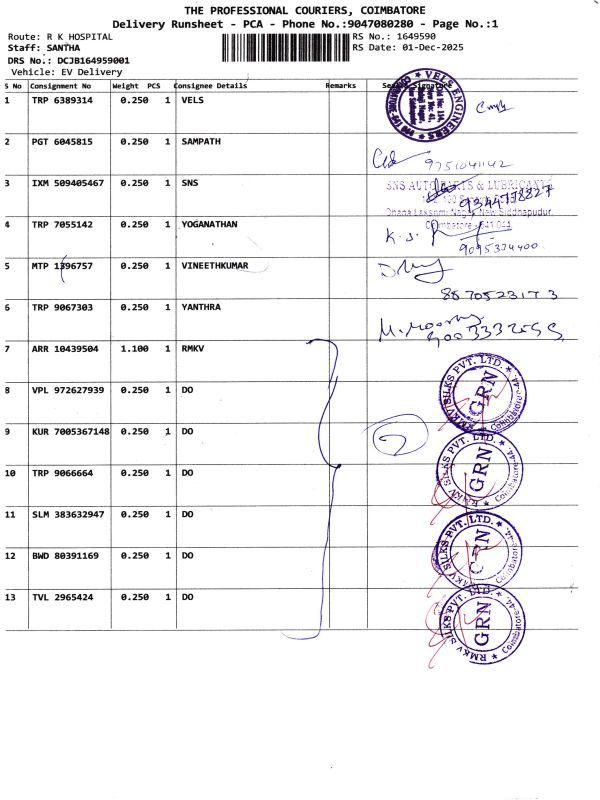 THE PROFESSIONAL COURIERS, COIMBATORE
Delivery Runsheet - PCA - Phone No.:9047080280 - Page No.:1
Route: R K HOSPITAL RS No.: 1649590
Staff: SANTHA RS Date: 01-Dec-2025
DRS No.: DCJB164959001
Vehicle: EV Delivery
S No Consignment No Weight PCS Consignee Details Remarks Seal Signature
1 TRP 6389314 0.250 1 VELS
VELS ENGINEERS
2 PGT 6045815 0.250 1 SAMPATH
9751041142
3 IXM 509405467 0.250 1 SNS
SNS AUTO PARTS & LUBRICANTS
9344778827
Dhana Laksmi Nagar, New Siddhapudur,
Coimbatore - 641 044.
4 TRP 7055142 0.250 1 YOGANATHAN
9095374400
5 MTP 1396757 0.250 1 VINEETHKUMAR
8870523173
6 TRP 9067303 0.250 1 YANTHRA
M. Moorthy
7 ARR 10439504 1.100 1 RMKV
8 VPL 972627939 0.250 1 DO
RMKV SILKS PVT. LTD. ★ Coimbatore-44. ★
GRN
9 KUR 7005367148 0.250 1 DO
7
10 TRP 9066664 0.250 1 DO
RMKV SILKS PVT. LTD. ★ Coimbatore-44. ★
GRN
11 SLM 383632947 0.250 1 DO
12 BWD 80391169 0.250 1 DO
RMKV SILKS PVT. LTD. ★ Coimbatore-44. ★
GRN
13 TVL 2965424 0.250 1 DO
RMKV SILKS PVT. LTD. ★ Coimbatore-44. ★
GRN